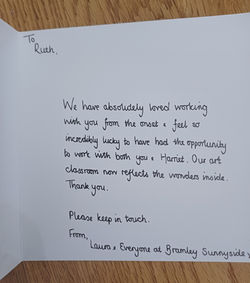 To
Ruth,
We have absolutely loved working
with you from the onset & feel so
incredibly lucky to have had the opportunity
to work with both you & Harriet. Our art
classroom now reflects the wonders inside.
Thank you.
Please keep in touch.
From,
Laura & Everyone at Bramley Sunnyside x